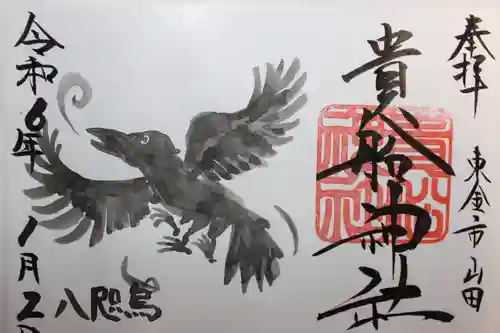 奉拝
東金市山田
貴船神社
八咫烏
令和6年1月2日